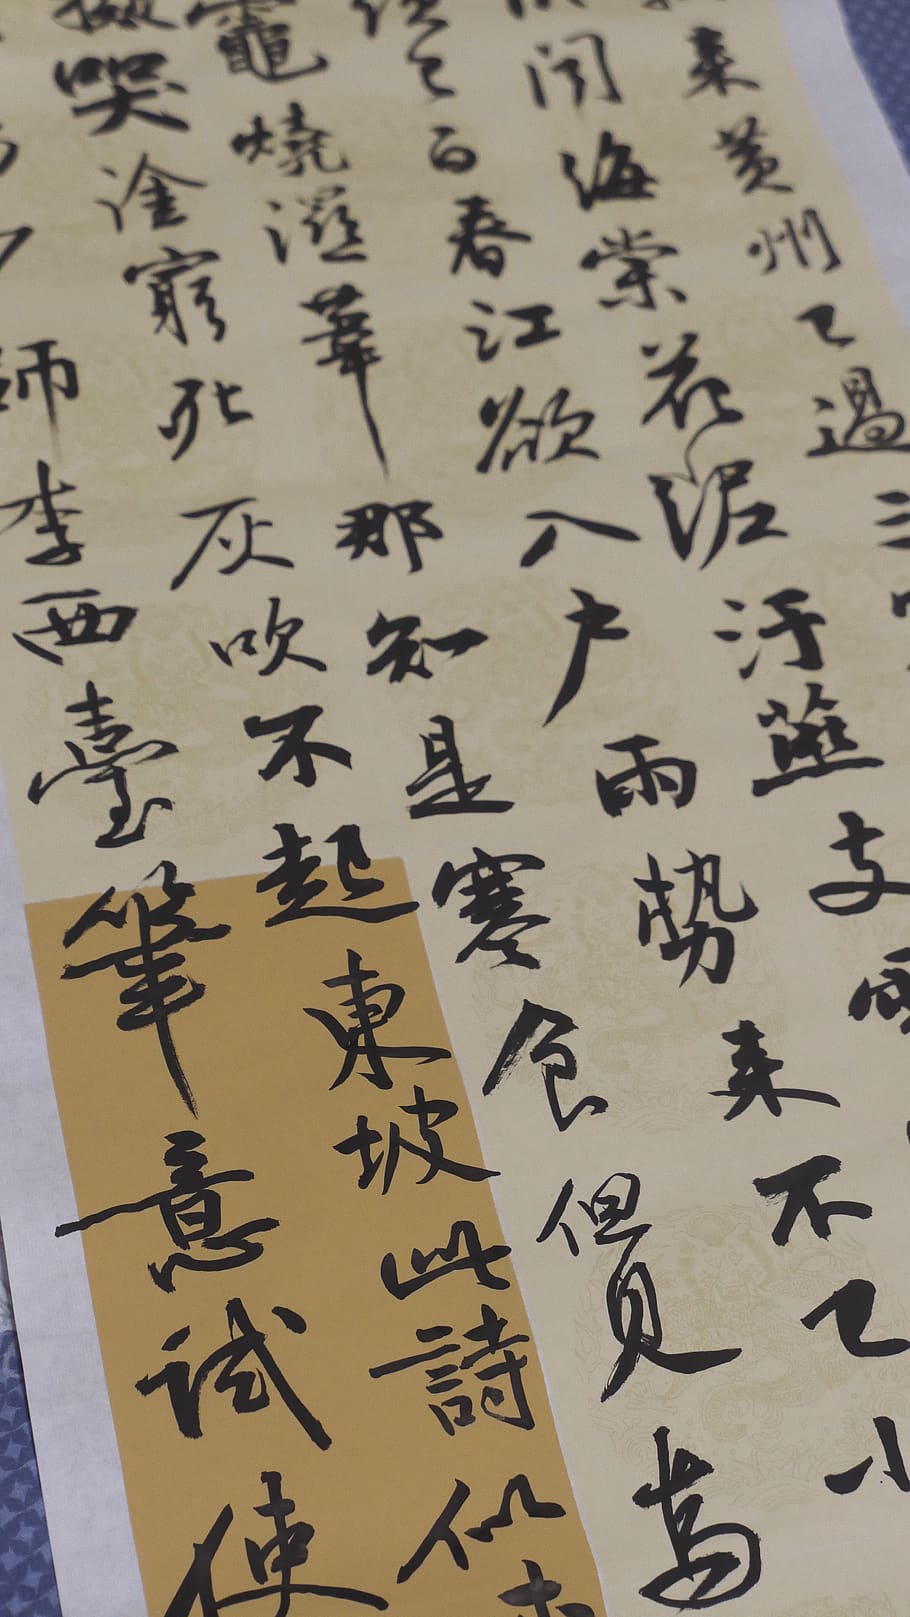 来黄州已過三
闻海棠花泥汙燕支雪
已白春江欲入户雨勢来不已小
竈燒溼葦那知是寒食但見烏
擬哭塗窮死灰吹不起東坡此詩似
師李西臺筆意試使